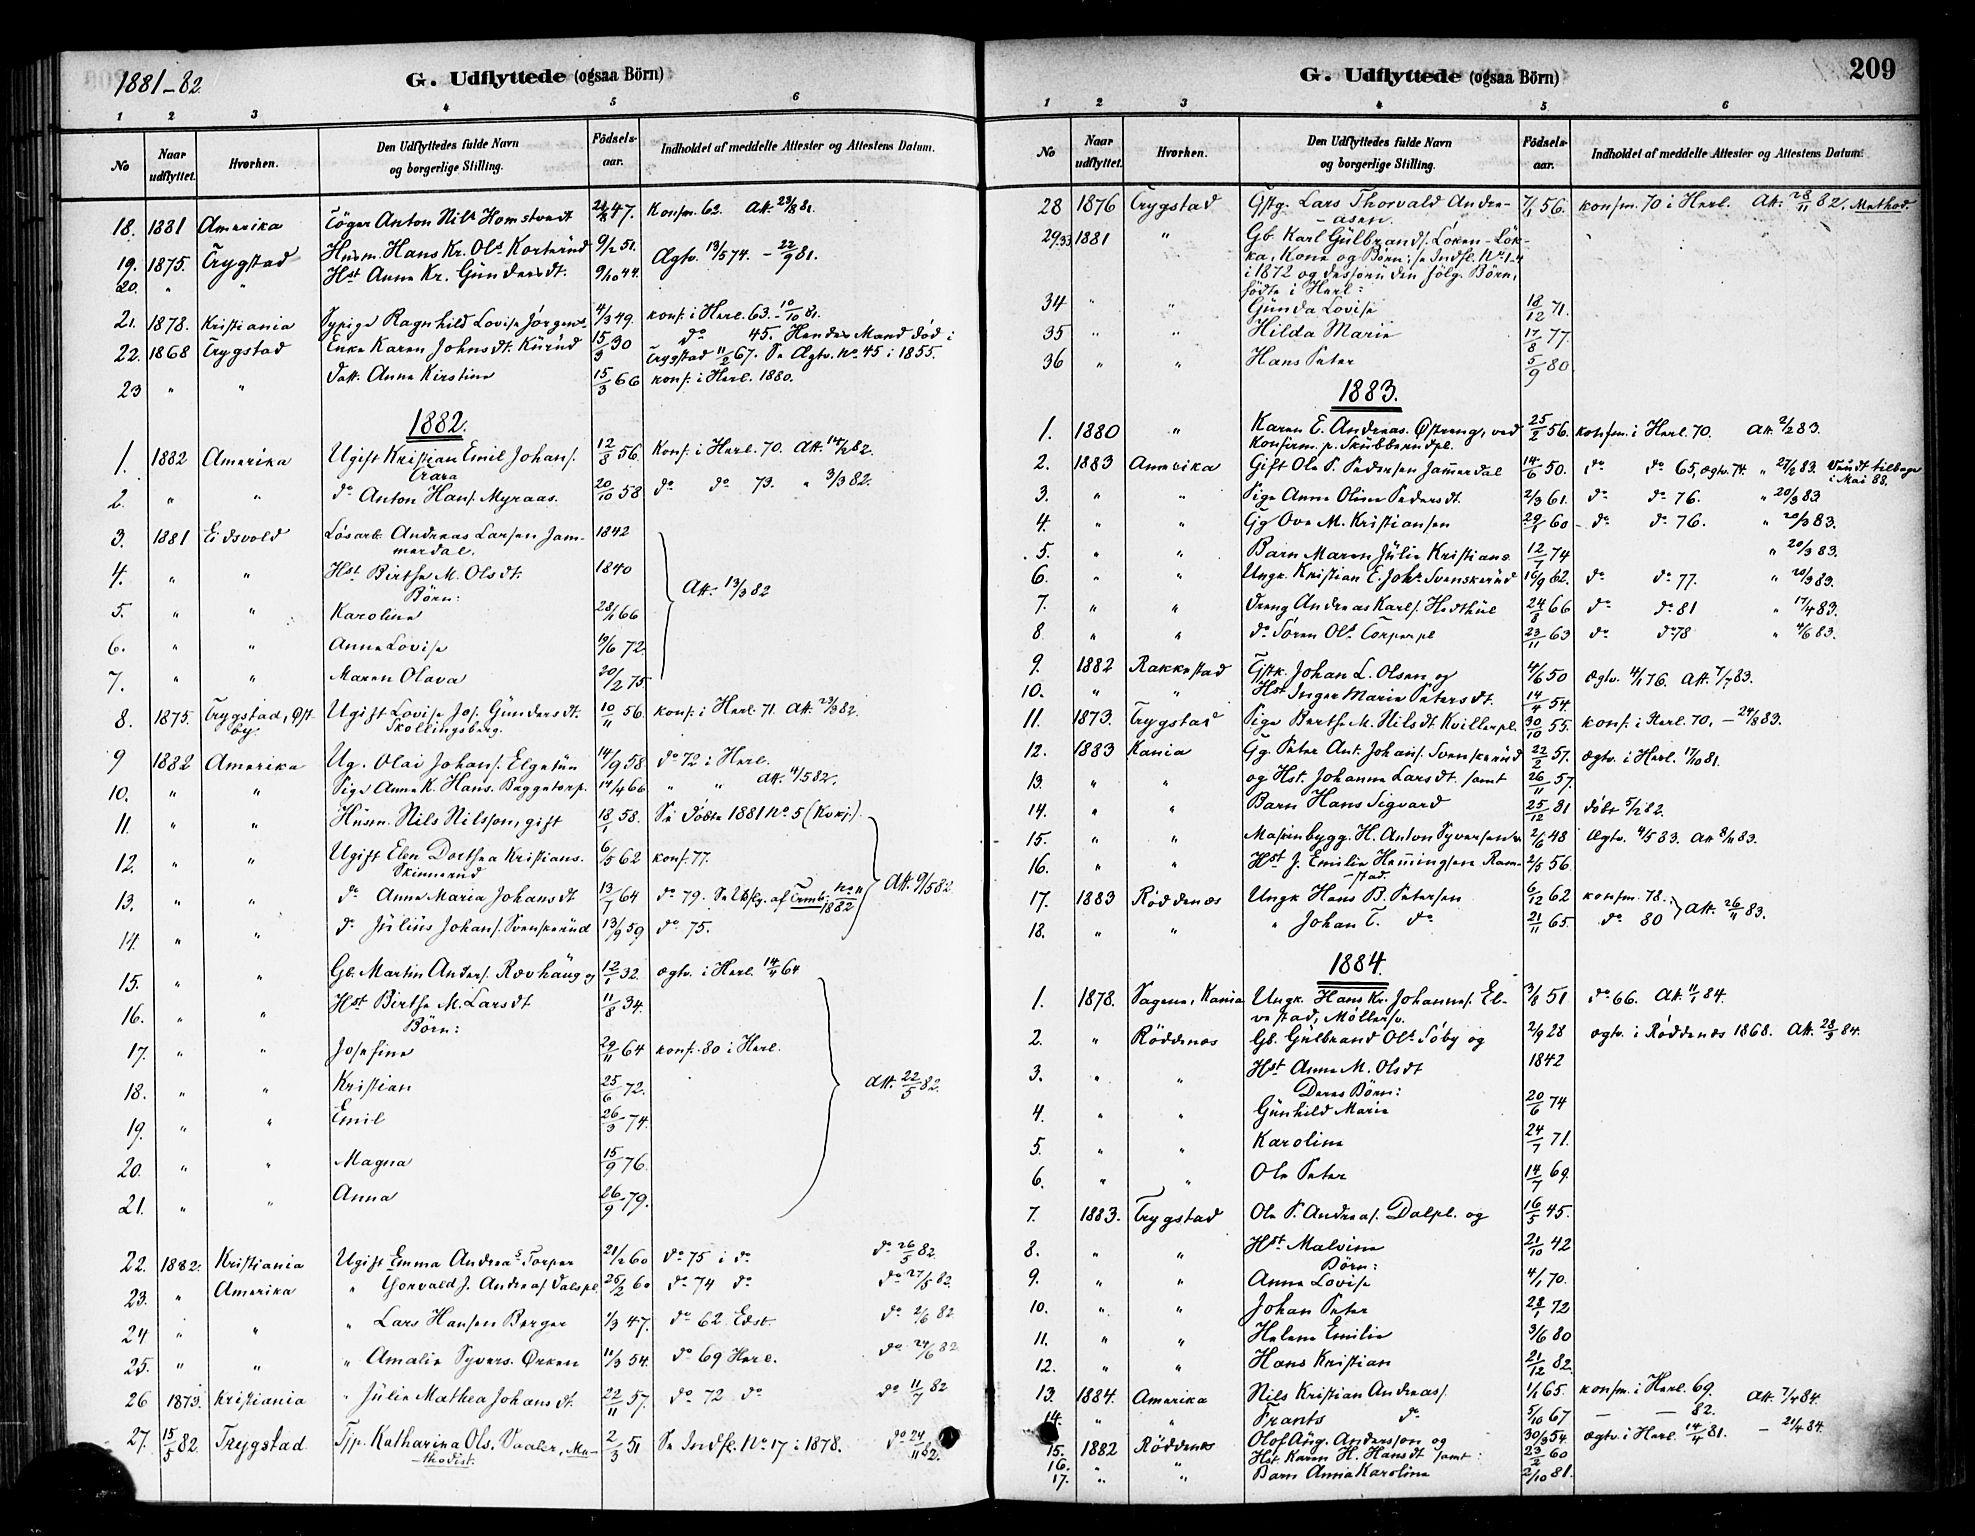 1881-82.
G. Udflyttede (ogsaa Börn)
1 2 3 4 5 6
No Naar udflyttet. Hvorhen. Den Udflyttedes fulde Navn og borgerlige Stilling. Födsels-aar. Indholdet af meddelte Attester og Attestens Datum.
18. 1881 Amerika Anton Nils Homstvedt 21/8 47. Konfm. 62. Att. 29/8 81.
19. 1875. Trygstad Husm. Hans Kr. Ols. Korterud 9/2 51. Ægtv. 13/5 74. – 22/9 81.
20. " " Hst Anne Kr. Gundersdt. 9/10 44.
21. 1878. Kristiania Sypige Ragnhild Lovise Jørgens. 4/3 49. konf. i Herl. 63. – 10/10 81.
22. 1868 Trygstad Enke Karen Johnsdt. Kurud 15/3 30 do 45. Hendes Mand død i
Trygstad 11/2 67. Se Ægtv. No 45 i 1855.
23 " " Datt. Anne Kirstine 15/3 66 konf. i Herl. 1880.
1882.
1. 1882 Amerika Ugift Kristian Emil Johans. 12/8 56. Konf. i Herl. 70. Att. 14/2 82.
2. " " do Anton Hans. Myraas. 20/10 58 do do 73. " 3/3 82.
3. 1881 Eidsvold Løsarb. Andreas Larsen Jam-
merdal. 1842
4. " " Hst. Birthe M. Olsdt. 1840 Att. 13/3 82
Børn:
5. " " Karoline 28/1 66
6. " " Anne Lovise 19/6 72.
7. " " Maren Olava 20/2 75.
8. 1875. Trygstad, Øst-
by. Ugift Lovise Jos. Gundersdt.
Skollingsberg. 10/11 56. konf. i Herl. 71. Att. 23/3 82.
9 1882 Amerika Ug. Olai Johans. Elgetun 14/9 58 do 72 i Herl.
10. " " Pige Anne K. Hans. Baggetorp. 14/4 66 " " Att. 4/5 82.
11. " " Husm. Nils Nilsson, gift 18/1 58. Se Døbte 1881 No 5 (Kvkj.).
12. " " Ugift Elen Dorthea Kristians.
Skinnerud 6/5 62 konf. 77.
13. " " do Anne Maria Johansdt 13/7 64 do 79. Att. 9/5 82
14. " " do Julius Johans. Svenskerud 13/9 59 do 75.
15. " " Gb. Martin Anders. Rævhaug og 12/1 32. ægtv. i Herl. 14/4 64
16. " " Hst Birthe M. Larsdt 11/8 34.
Børn:
17. " " Josefine 29/11 64 konf. 80 i Herl.
18. " " Kristian 25/6 72. Att. 22/5 82.
19. " " Emil 26/3 74.
20. " " Magna 15/9 76.
21. " " Anna 26/9 79.
22. 1882. Kristiania Ugift Emma Andreas Torper 21/2 60 do 75 i do do 26/5 82.
23. " Amerika " Thorvald J. Andreas. Dalspl. 25/2 60 do 74 do do 27/5 82.
24 " " " Lars Hansen Berger 1/3 47. do 62 Edst. do 2/6 82
25. " " " Amalie Syvers. Ørken 11/3 54. do 69 Herl. do 24/6 82
26 1873. Kristiania " Julie Mathea Johansdt. 22/11 57. do 72 do do 11/7 82
27. 15/5 82. Trygstad. Tjp. Katharina Ols. Vaaler, Me-
thodist. 2/3 51 Se Indfl. No. 17 i 1878. do 24/11 82.
209
G. Udflyttede (ogsaa Börn)
1 2 3 4 5 6
No Naar udflyttet. Hvorhen. Den Udflyttedes fulde Navn og borgerlige Stilling. Födsels-aar. Indholdet af meddelte Attester og Attestens Datum.
28 1876 Trygstad Gftg. Lars Thorvald Andre-
asen. 7/1 56. konfm. 70 i Herl. Att. 28/11 82. Method.
29-33 1881 " Gb. Karl Gulbrands. Løken-Løk-
ka, Kone og Børn: se Indfl. No 1-4
i 1872 og dessuden følg. Børn,
fødte i Herl:
34 " " Gunda Lovise 18/12 71.
35 " " Hilda Marie 17/8 77.
36 " " Hans Peter 5/9 80
1883.
1. 1880 " Karen E. Andreas. Østreng, ved
Konfirm. p. Skubberudpl. 25/2 56. konfm. i Herl. 70. Att. 2/2 83.
2. 1883 Amerika Gift Ole P. Pedersen Jamerdal 14/6 50. do do 65, ægtv. 74. " 27/2 83. Vendt tilbage
i Mai 88.
3. " " Pige Anne Oline Pedersdt. 2/3 61. do do 76. " 20/3 83.
4. " " Gg Ove M. Kristiansen 29/1 60 – do do 76. " 20/3 83.
5. " " Barn Maren Julie Kristians. 12/7 74 " 20/3 83.
6. " " Ungk. Kristian E. Johs. Svenskerud 16/9 62. do do 77. " 20/3 83.
7. " " Dreng Andreas Karls. Hedthul 24/8 66 do do 81 " 17/4 83.
8 " " do Søren Ols. Torperpl 23/11 63 do do 78 " 4/6 83.
9. 1882 Rakkestad Gftk. Johan L. Olsen og 4/6 50 ægtv. 14/1 76. Att. 7/7 83.
10. " " Hst. Inger Marie Petersdt. 14/4 54.
11. 1873. Trygstad Pige Berthe M. Nilsdt. Kvillerpl. 30/10 55. konf. i Herl. 70. – 24/8 83.
12. 1883 Kania Gg. Peter Ant. Johans. Svenskerud 22/2 57. ægtv. i Herl. 17/10 81.
13. " " og Hst. Johanne Larsdt. samt 26/11 57.
14. " " Barn Hans Sigvard 25/12 81 døbt 5/2 82.
15. " " Masinbygg. H. Anton Syversen 2/6 48 Ægtv. 4/5 83. Att 8/11 83.
16. " " Hst J. Emilie Hemingsen Ram-
stad. 2/5 56.
17. 1883 Røddenæs Ungk Hans B. Petersen 6/12 62 konfm. 78. Att. 26/11 83.
18. " " " Johan T. do 21/11 65. do 80
1884.
1. 1878. Sagene, Kania Ungk. Hans Kr. Johannes. El-
vestad, Møllersv. 3/8 51 do 66. Att. 11/1 84.
2. " Røddenæs Gb. Gulbrand Ols. Søby og 2/9 28 ægtv. i Røddenæs 1868. Att. 28/3 84.
3. " " Hst Anne M. Olsdt 1842
Deres Børn:
4. " " Gunhild Marie 20/6 74
5. " " Karoline 24/7 71.
6. " " Ole Peter 14/7 69.
7. 1883. Trygstad Ole P. Andreas. Dalpl. og 16/5 45.
8. " " Hst. Malvine 21/10 42
Børn:
9. " " Anne Lovise 4/1 70.
10. " " Johan Peter 28/1 72
11. " " Helene Emilie 3/6 80
12. " " Hans Kristian 21/12 82.
13. 1884. Amerika Nils Kristian Andreas. 1/1 65. konfm. i Herl. 69. Att. 7/4 84.
14. " " Frants do 5/10 67 — — 82.
15. 1882 Røddenæs Olof Aug. Andersson og 30/3 54. ægtv. i Herl. 14/4 81. – 21/4 84.
16. " " Hst. Karen H. Hansdt samt: 23/2 60
17. " " Barn Anna Karoline 2/10 81.